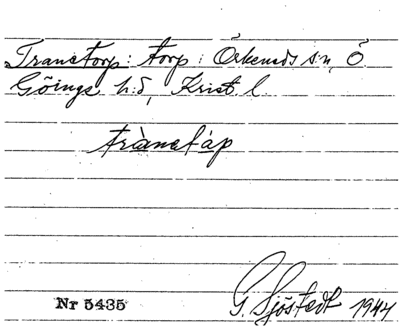 Tranetorp: torp: Örkeneds sn, Ö.
Göinge h:d, Krist. l.
trànetáp
Nr 5435
G. Sjöstedt 1944